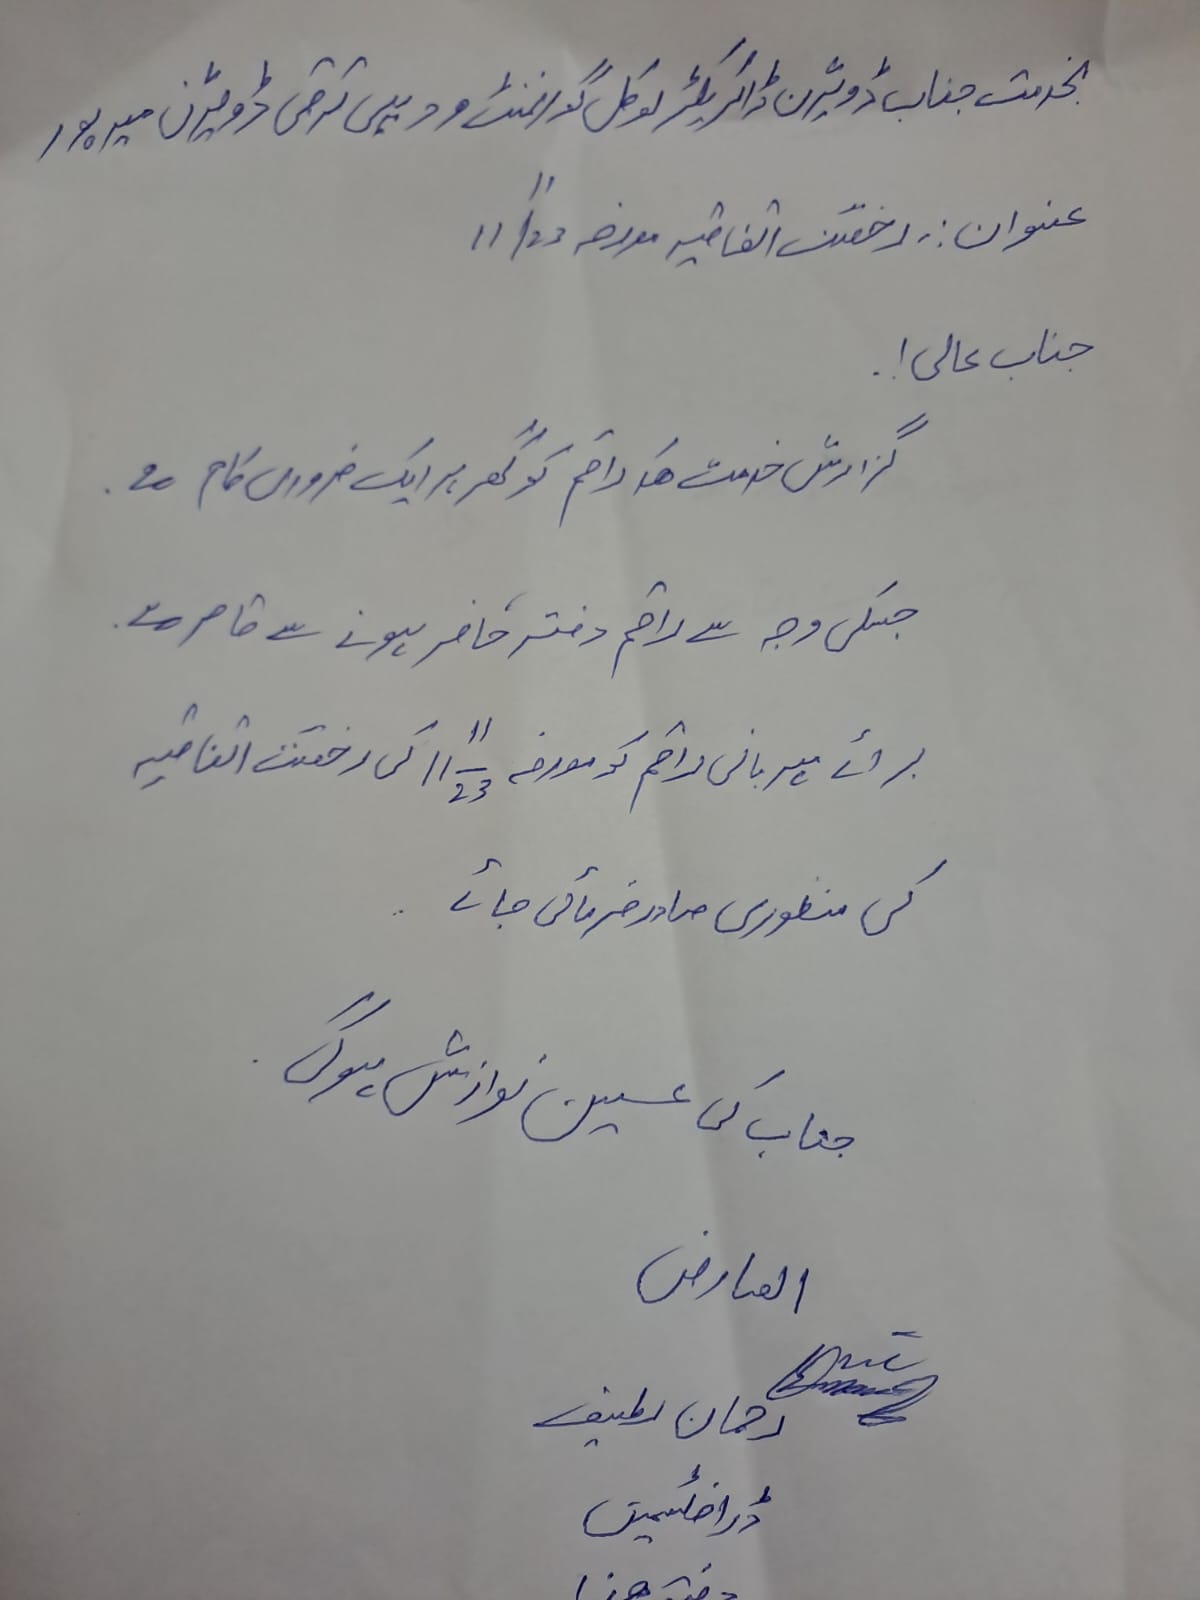 بخدمت جناب ڈویژن ڈائریکٹر لوکل گورنمنٹ و دیہی ترقی ڈویژن میرپور
عنوان :۔ رخصت اتفاقیہ مورخہ 11/11/23
جناب عالی !۔
گزارش خدمت ھیکہ راقم کو گھر پر ایک ضروری کام ہے ۔
جسکی وجہ سے راقم دفتر حاضر ہونے سے قاصر ہے ۔
برائے مہربانی راقم کو مورخہ 11/11/23 کی رخصت اتفاقیہ
کی منظوری صادر فرمائی جائے ۔
جناب کی عین نوازش ہوگی ۔
العارض
رحمان لطیف
ڈرافٹسمین
دفتر ھذا